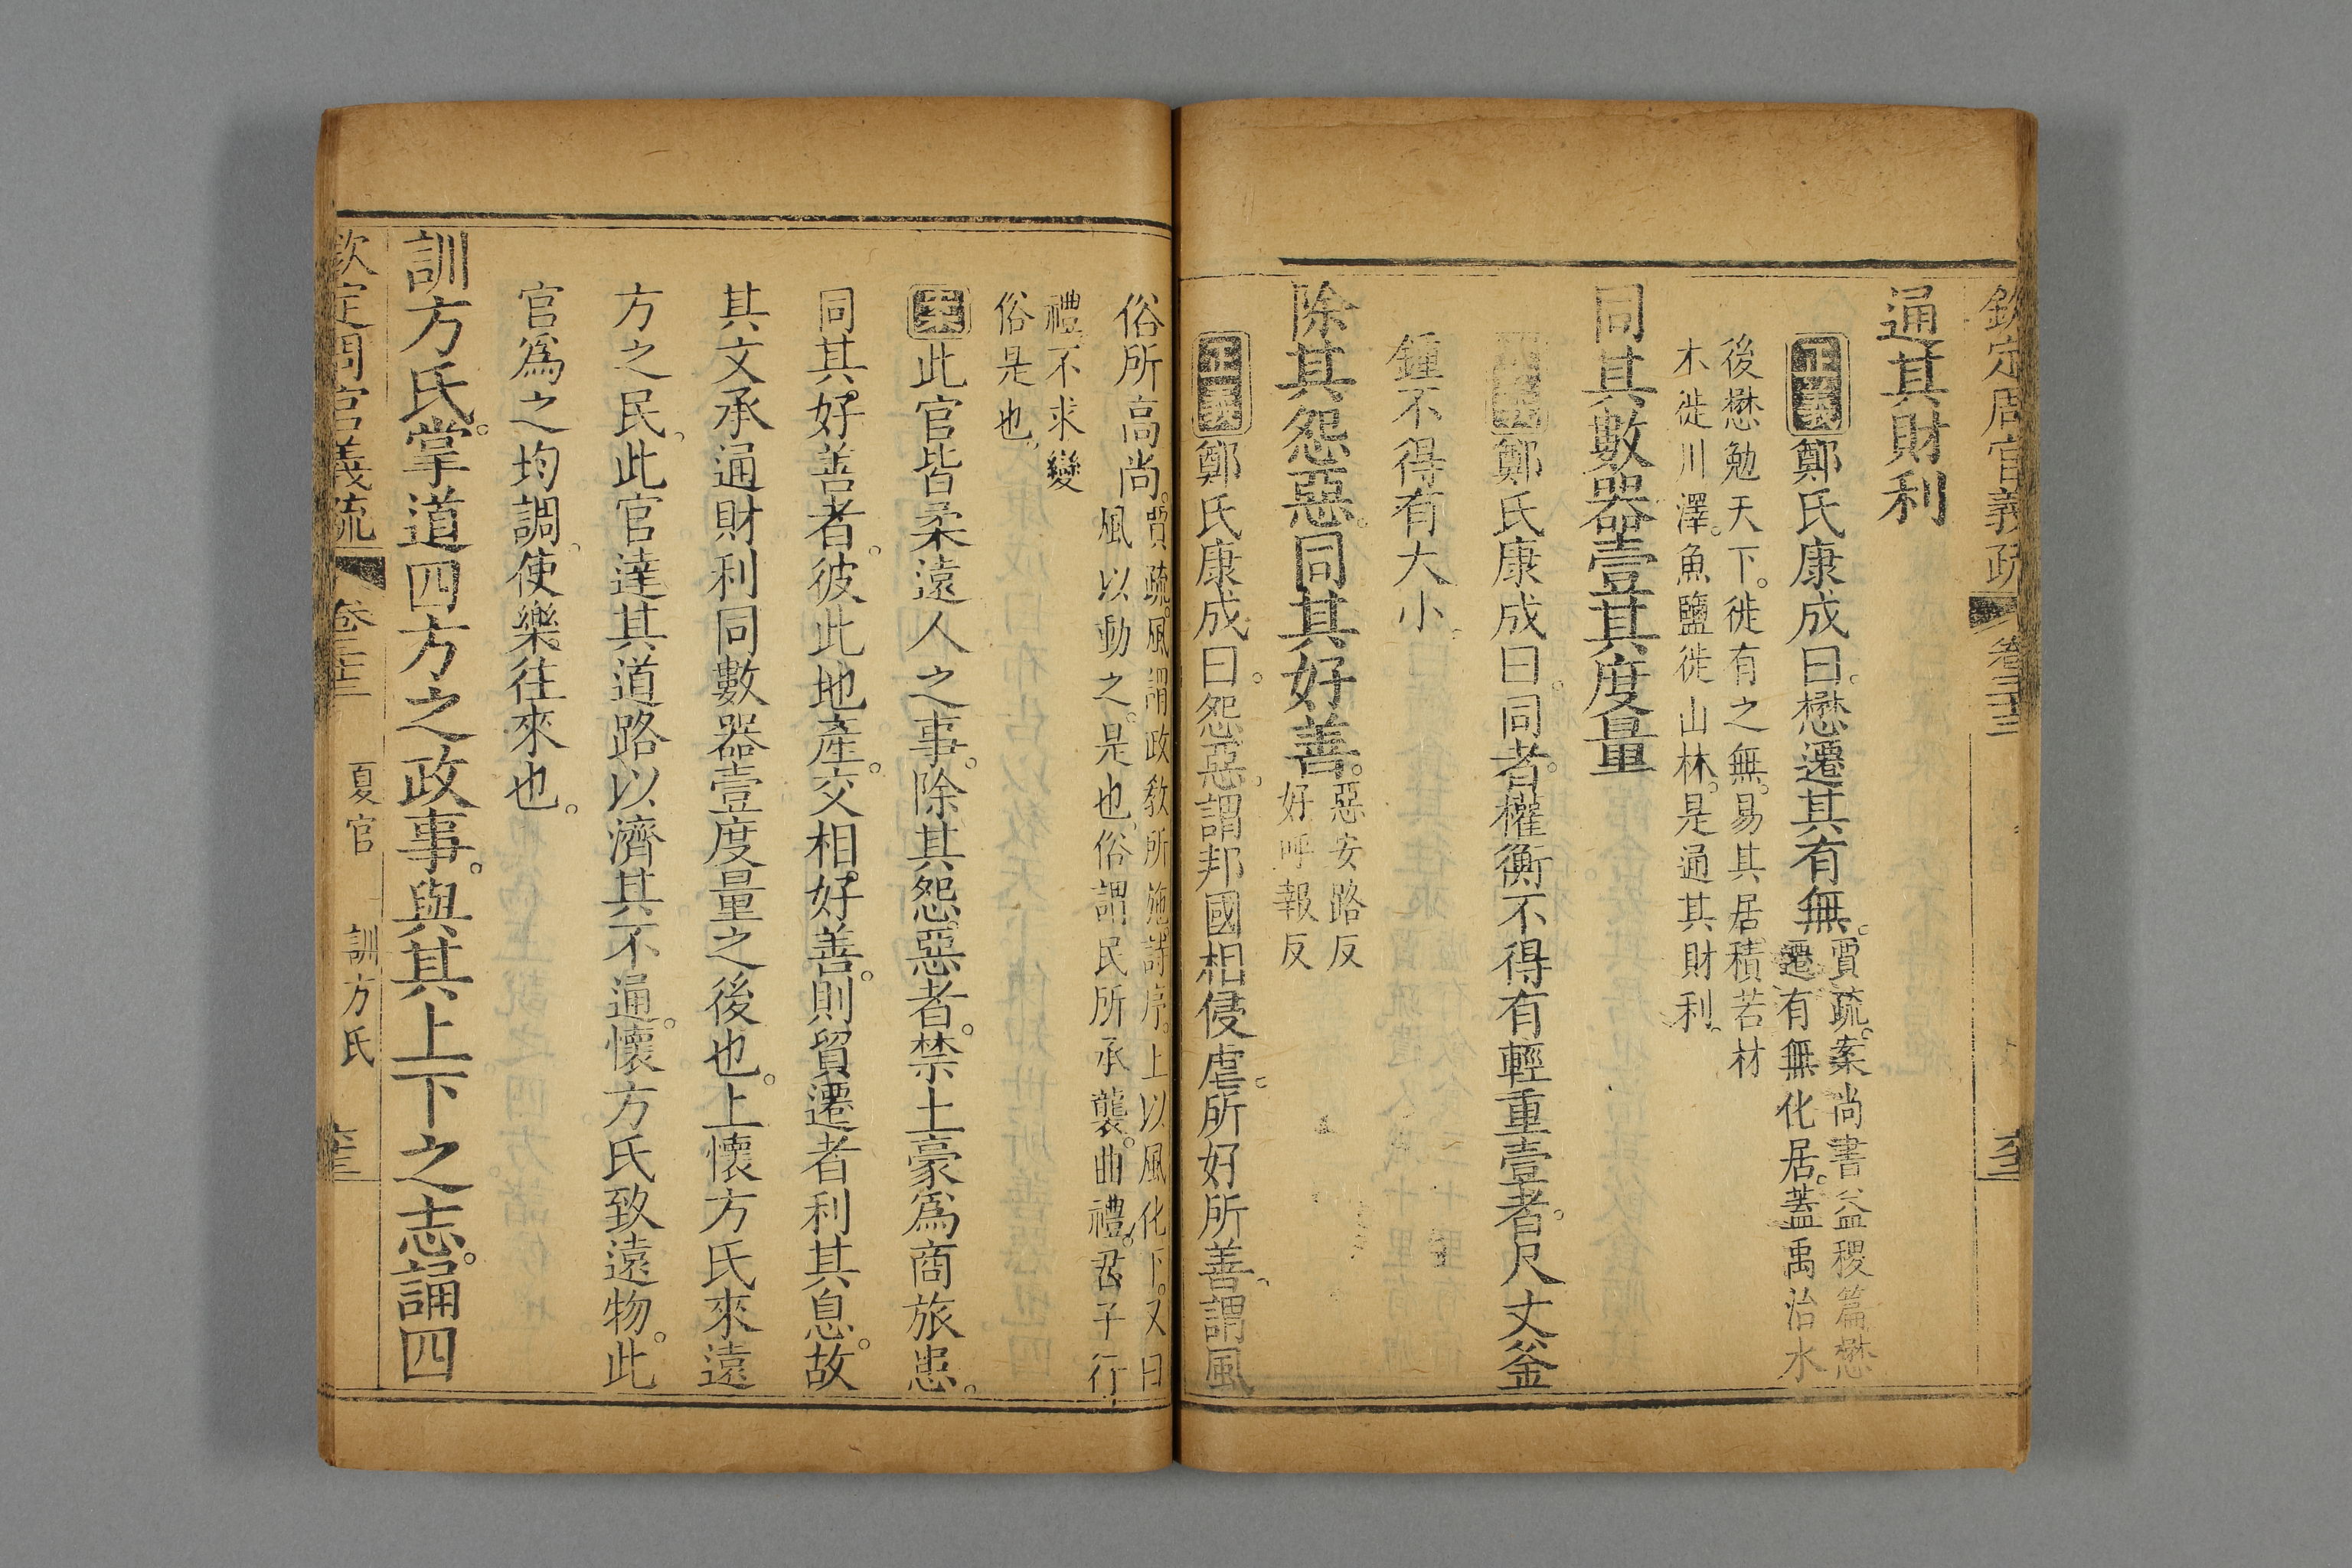 欽定周官義疏 卷三十三
通其財利
正義鄭氏康成曰。懋遷其有無。賈疏。案尚書益稷篇懋
遷有無化居。蓋禹治水
後懋勉天下。徙有之無。易其居積。若材
木徙川澤。魚鹽徙山林。是通其財利。
同其數器壹其度量
正義鄭氏康成曰。同者。權衡不得有輕重壹者。尺丈釜
鍾不得有大小。
除其怨惡。同其好善。惡安路反
好呼報反
正義鄭氏康成曰。怨惡。謂邦國相侵虐。所好所善。謂風
俗所高尚。賈疏。風謂政敎所施。詩序。上以風化下。又曰
風以動之。是也。俗謂民所承襲。曲禮。君子行
禮不求變
俗是也。
案此官皆柔遠人之事。除其怨惡者。禁土豪爲商旅患。
同其好善者。彼此地產。交相好善。則貿遷者利其息。故
其文承通財利同數器壹度量之後也。上懷方氏來遠
方之民。此官達其道路以濟其不通。懷方氏致遠物。此
官爲之均調。使樂往來也。
訓方氏。掌道四方之政事。與其上下之志。誦四
欽定周官義疏 卷三十三 夏官 訓方氏